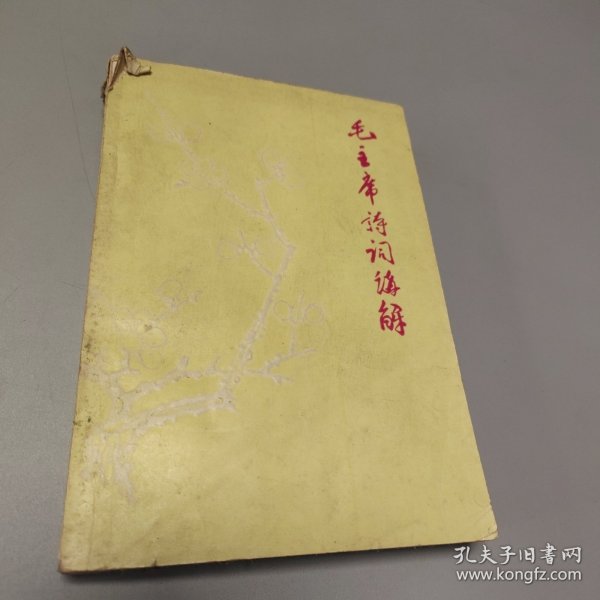 毛主席詩词講解
孔夫子旧書网
www.kongfz.com